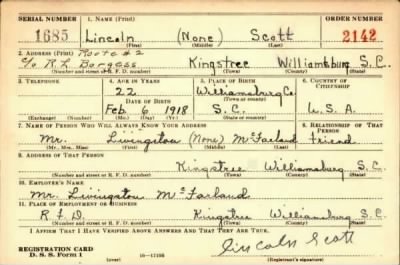 SERIAL NUMBER 1. NAME (Print) ORDER NUMBER
1685 Lincoln (None) Scott 2142
(First) (Middle) (Last)
2. ADDRESS (Print) Route #2
c/o R. L. Burgess Kingstree Williamsburg S.C.
(Number and street or R. F. D. number) (Town) (County) (State)
3. TELEPHONE 4. AGE IN YEARS 5. PLACE OF BIRTH 6. COUNTRY OF CITIZENSHIP
22 Williamsburg Co.
DATE OF BIRTH (Town or county)
Feb 6 1918 S.C. U.S.A.
(Exchange) (Number) (Mo.) (Day) (Yr.) (State or country)
7. NAME OF PERSON WHO WILL ALWAYS KNOW YOUR ADDRESS 8. RELATIONSHIP OF THAT PERSON
Mr. Livingston (None) McFarland friend
(Mr., Mrs., Miss) (First) (Middle) (Last)
9. ADDRESS OF THAT PERSON
Kingstree Williamsburg S.C
(Number and street or R. F. D. number) (Town) (County) (State)
10. EMPLOYER'S NAME
Mr. Livingston McFarland
11. PLACE OF EMPLOYMENT OR BUSINESS
R F D. Kingstree Williamsburg S.C.
(Number and street or R. F. D. number) (Town) (County) (State)
I AFFIRM THAT I HAVE VERIFIED ABOVE ANSWERS AND THAT THEY ARE TRUE.
REGISTRATION CARD
D. S. S. Form 1 16—17105 Lincoln Scott
(Registrant's signature)